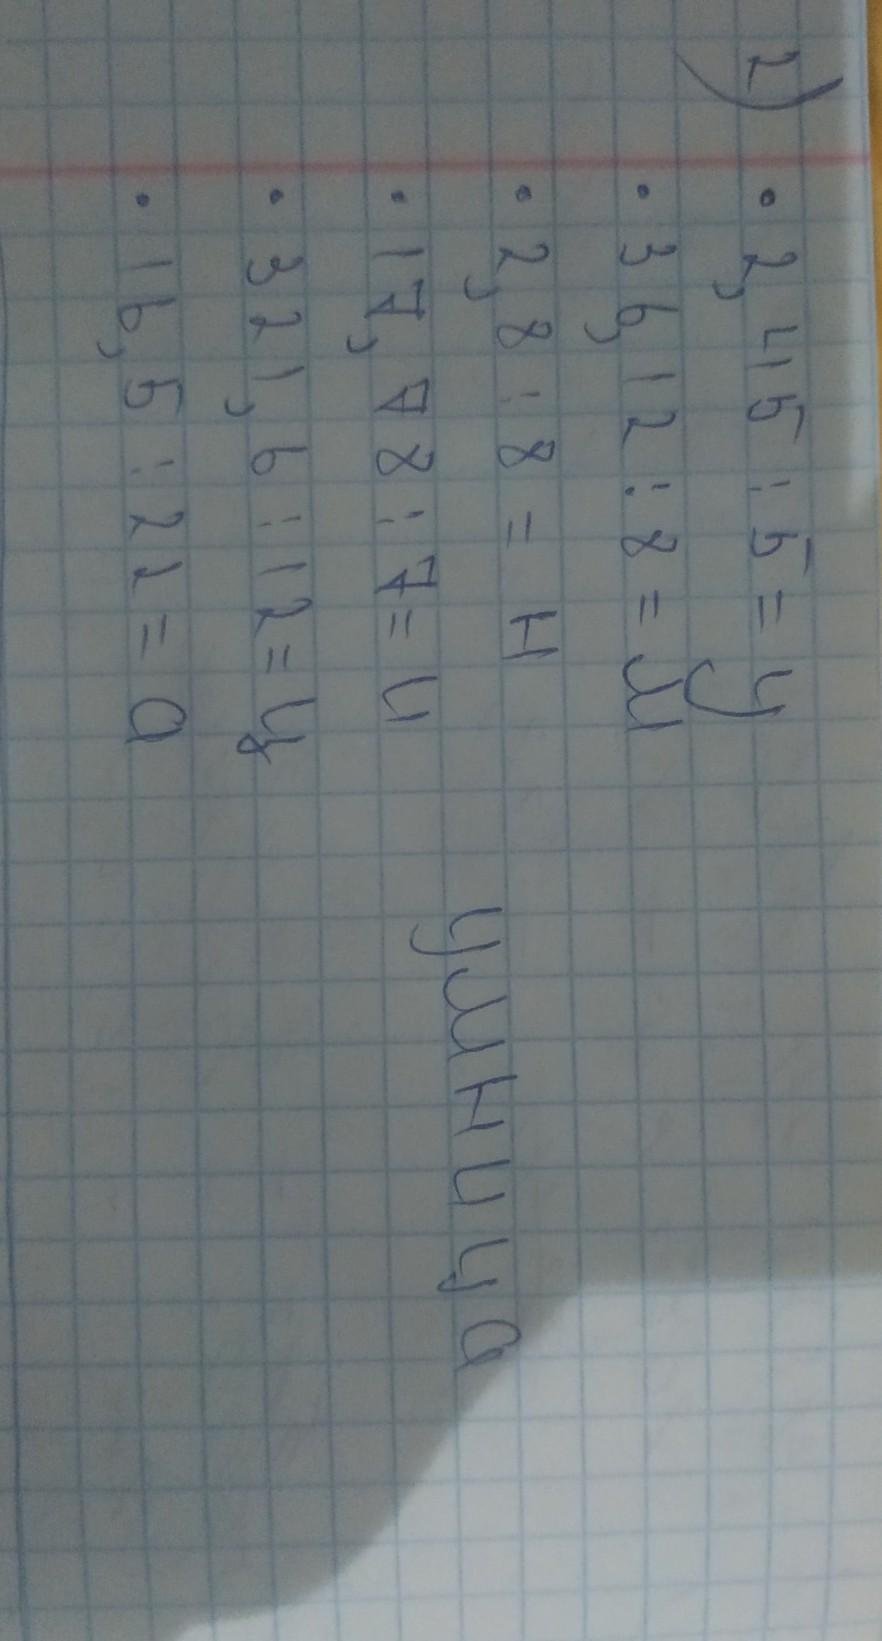 2)
• 2,45 : 5 = у
• 36,12 : 8 = м
• 2,8 : 8 = н
• 17,78 : 7 = и
• 321,6 : 12 = ц
• 16,5 : 22 = а
умница